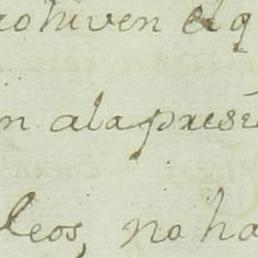 rohiven el q
n ala presẽ
leos, no ha